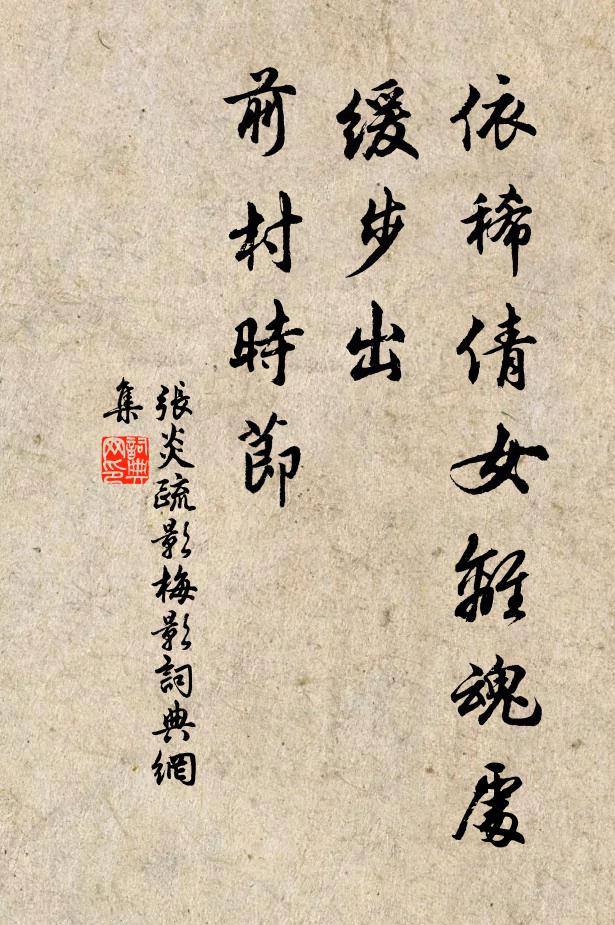 依稀倩女離魂處
緩步出
前村時節
張炎疏影梅影詞典網
集
詞典
网印